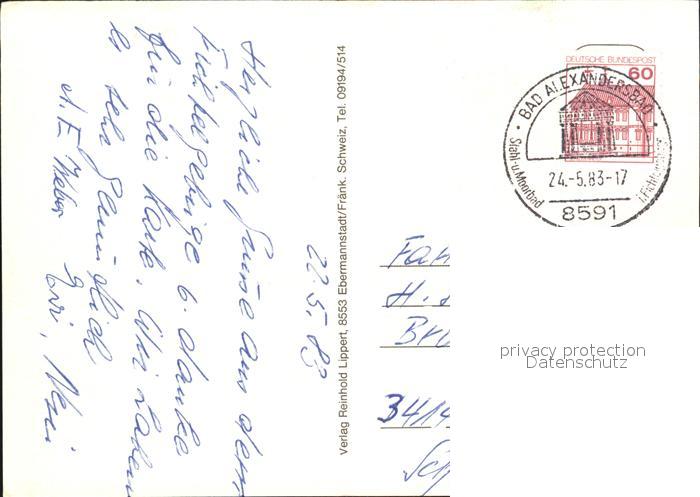 Herzliche Grüße aus dem
Fichtelgebirge u. danke
für die Karte. Wir haben
es sehr gemütlich
22.5.83
Verlag Reinhold Lippert, 8553 Ebermannstadt/Fränk. Schweiz, Tel. 09194/514
DEUTSCHE BUNDESPOST
60
BAD ALEXANDERSBAD
Stahl-u.Moorbad
24.-5.83-17
8591
Fam
H.
3414
Sch
privacy protection
Datenschutz